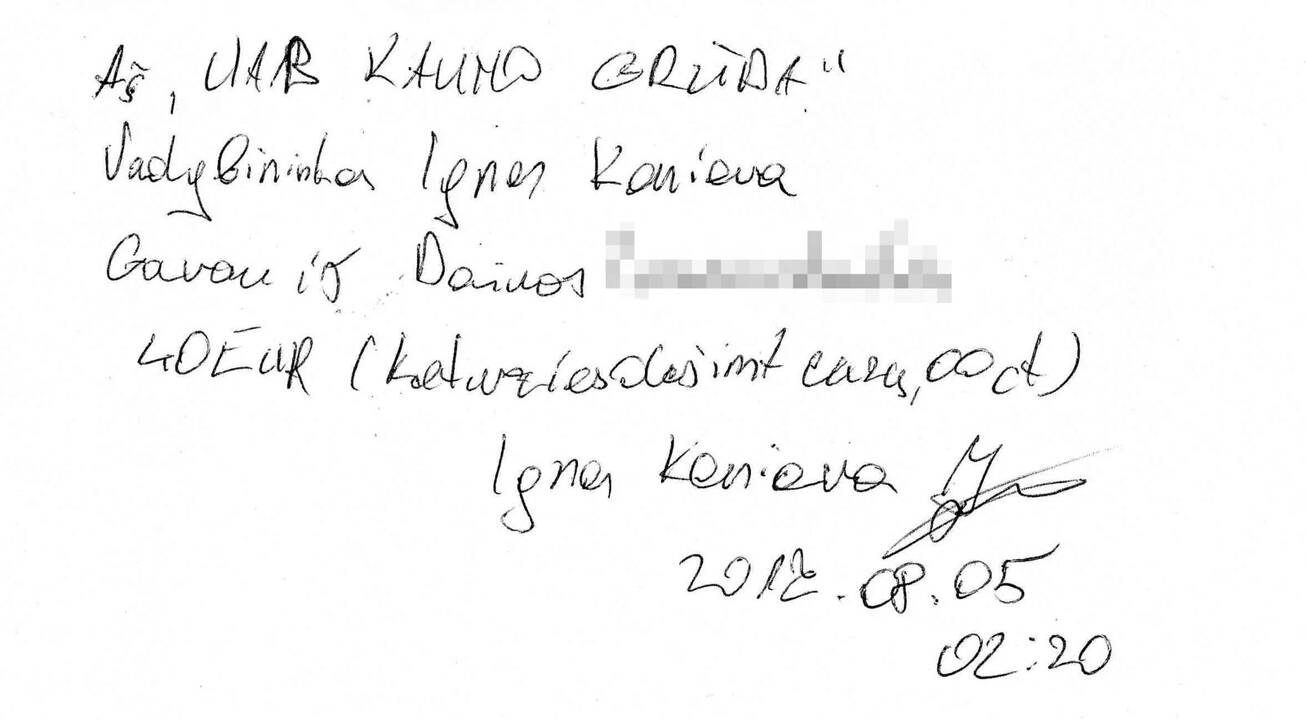 Aš, UAB KAUNO GRŪDA"
Vadybininkas Ignas Kaniava
Gavau iš Dainos
40EUR (keturziesdešimt eurų,00 ct)
Ignas Kaniava
2017.08.05
02:20